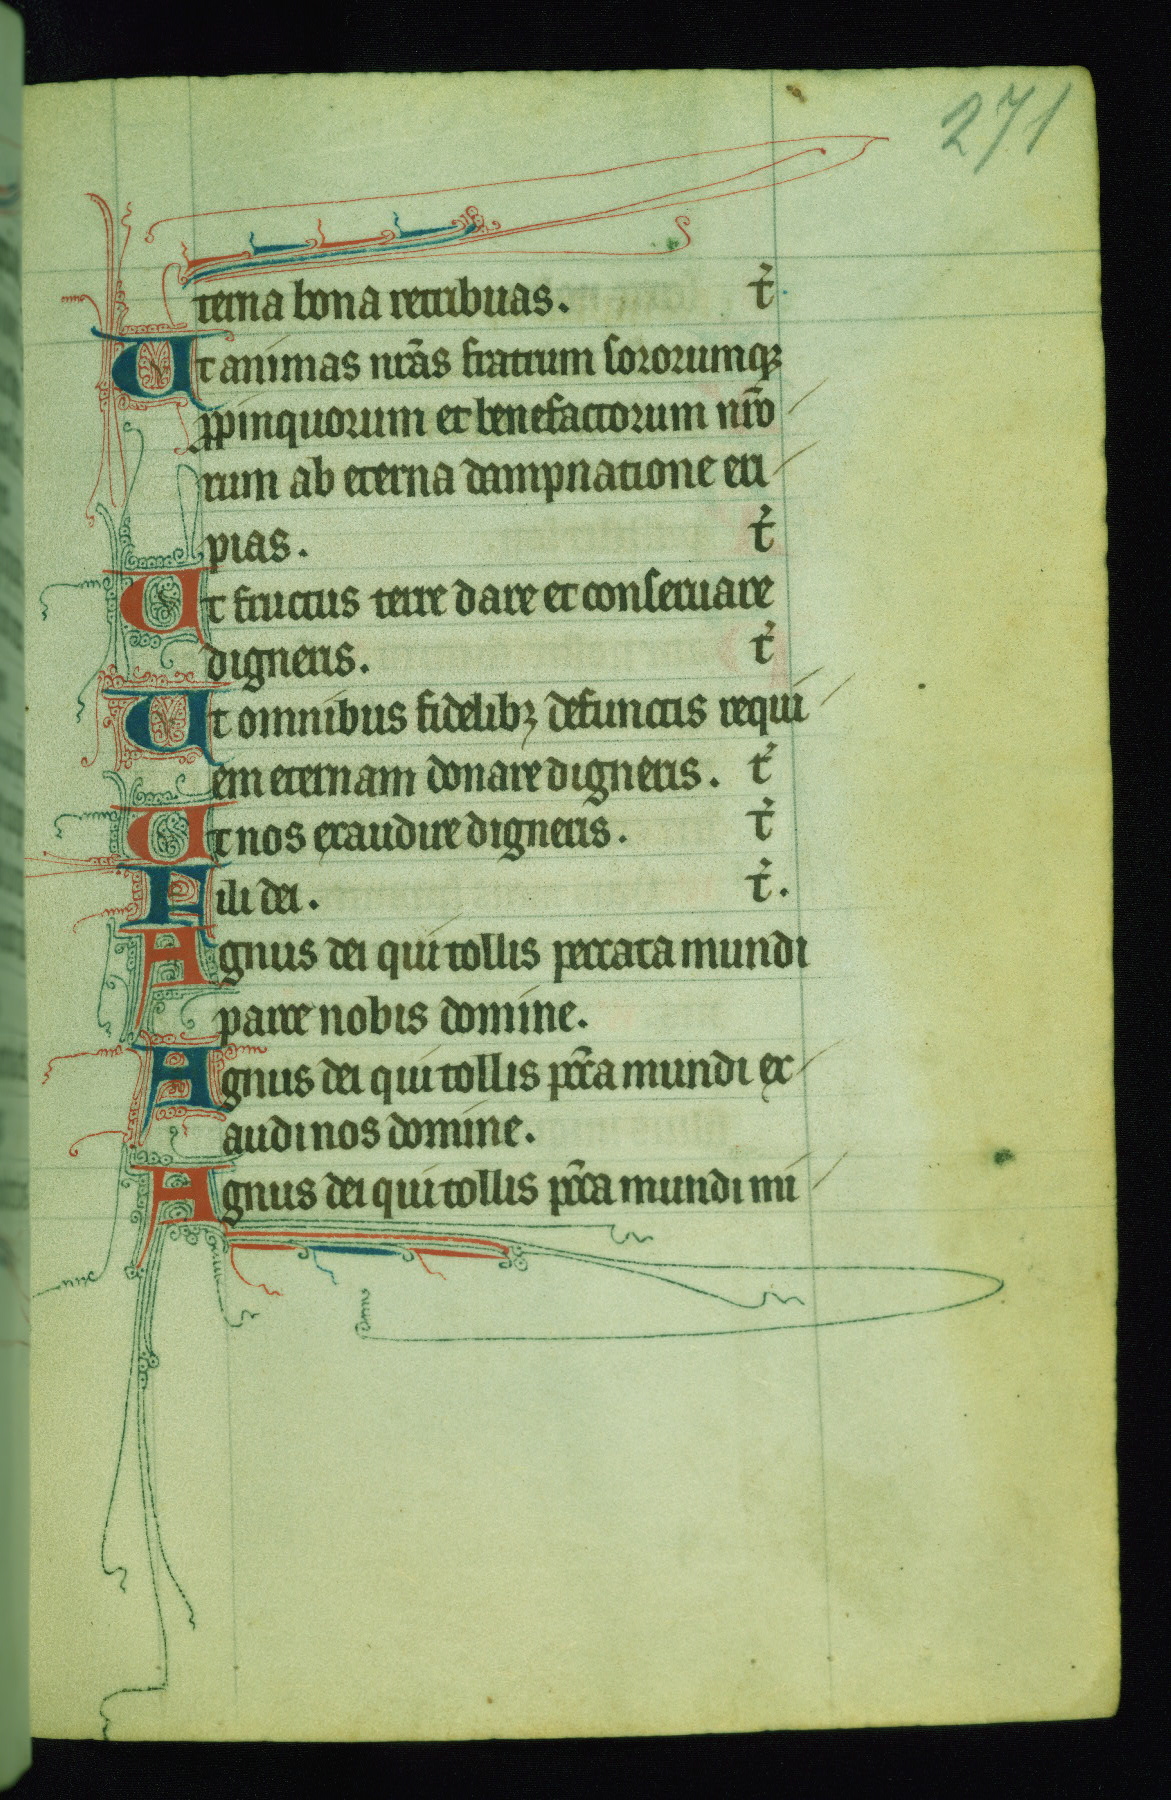 271
terna bona retribuas. t̄
Ut animas nrās fratrum sororumqꝫ
ꝓpinquorum et benefactorum nr̄o
rum ab eterna dampnatione eri
pias. t̄
Ut fructus terre dare et conseruare
digneris. t̄
Ut omnibus fidelibꝫ defunctis requi
em eternam donare digneris. t̄
Ut nos exaudire digneris. t̄
Fili dei. t̄.
Agnus dei qui tollis peccata mundi
parce nobis domine.
Agnus dei qui tollis pc̄ca mundi ex
audi nos domine.
Agnus dei qui tollis pc̄ca mundi mi